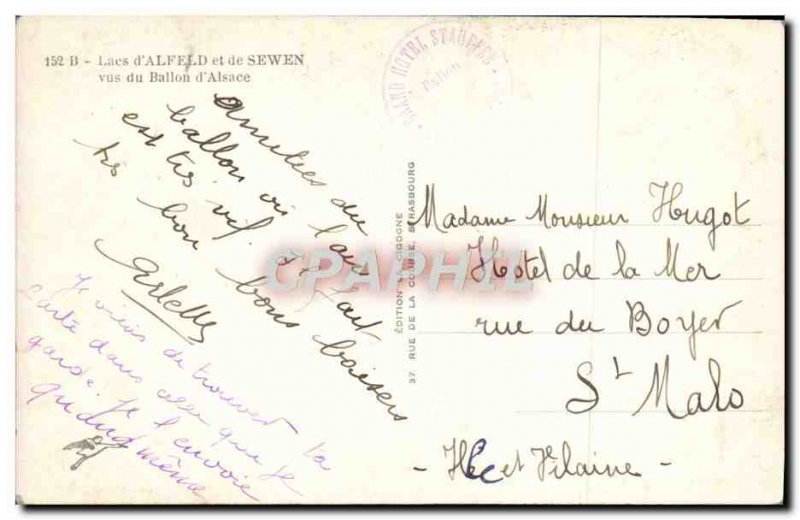 152 B - Lacs d'ALFELD et de SEWEN
vus du Ballon d'Alsace
GRAND HOTEL STAUFFER
Ballon
Amitiées du
ballon où l'air
est très vif et fait
très bon bons baisers
Arlette
Je viens de trouver la
carte dans celer que je
garde. Je l'envoie
quand même
ÉDITION LA CIGOGNE
37, RUE DE LA COURSE, STRASBOURG
CPAPHIL
Madame Monsieur Hugot
Hotel de la Mer
rue du Boyer
St Malo
- Ille et Vilaine -